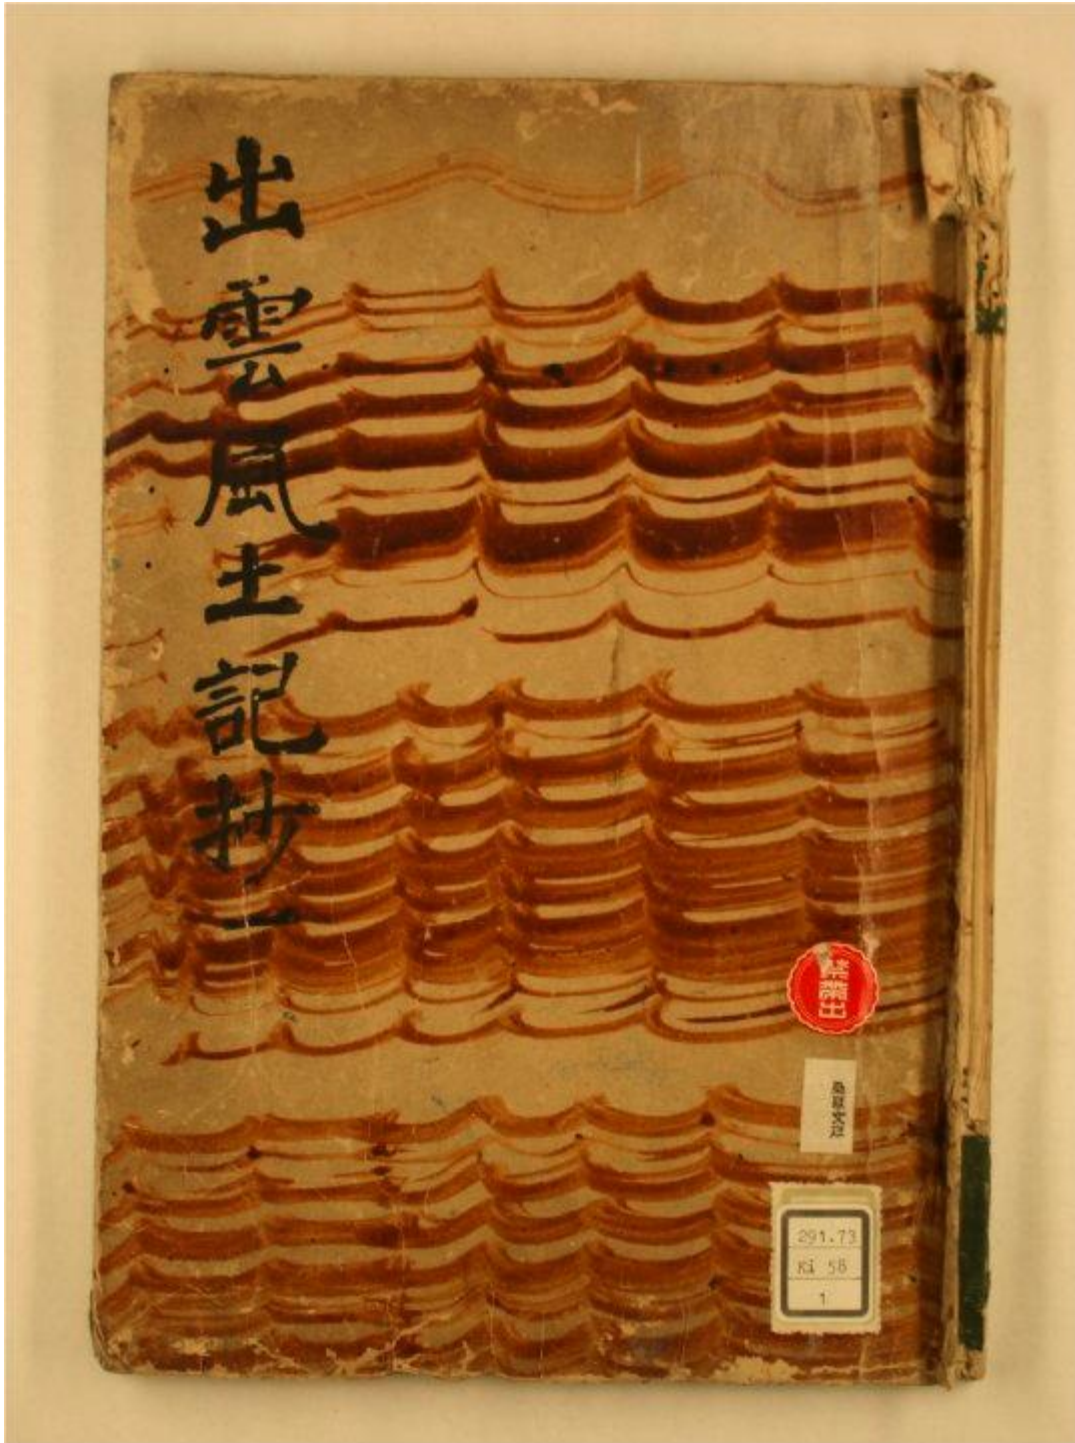 出雲風土記抄一
禁帯出
桑原文庫
291.73
Ki 58
1